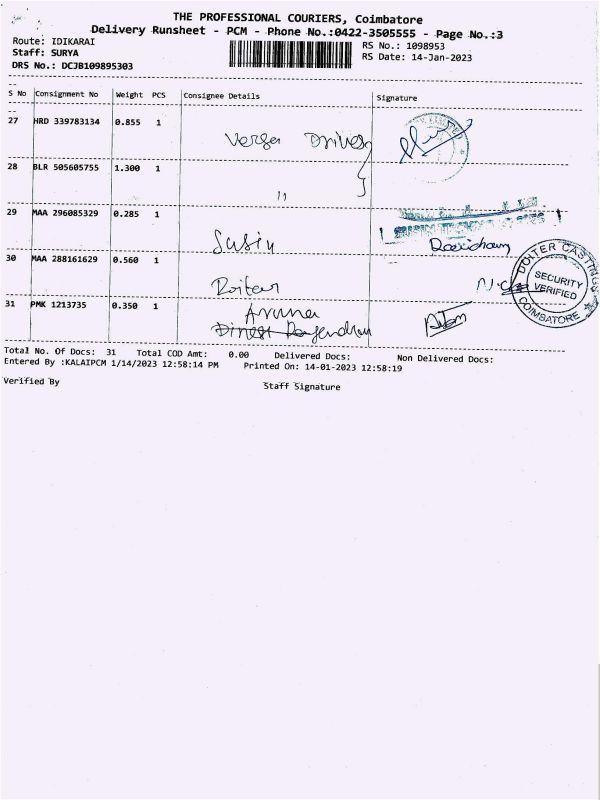 THE PROFESSIONAL COURIERS, Coimbatore
Delivery Runsheet - PCM - Phone No.:0422-3505555 - Page No.:3
Route: IDIKARAI
RS No.: 1098953
Staff: SURYA
RS Date: 14-Jan-2023
DRS No.: DCJB109895303
S No Consignment No Weight PCS Consignee Details Signature
27 HRD 339783134 0.855 1
Drives
28 BLR 505605755 1.300 1
"
29 MAA 296085329 0.285 1
Susin
30 MAA 288161629 0.560 1
DOITER CASTINGS
SECURITY
VERIFIED
COIMBATORE
31 PMK 1213735 0.350 1
Aruna
Total No. Of Docs: 31 Total COD Amt: 0.00 Delivered Docs: Non Delivered Docs:
Entered By :KALAIPCM 1/14/2023 12:58:14 PM Printed On: 14-01-2023 12:58:19
Verified By Staff Signature